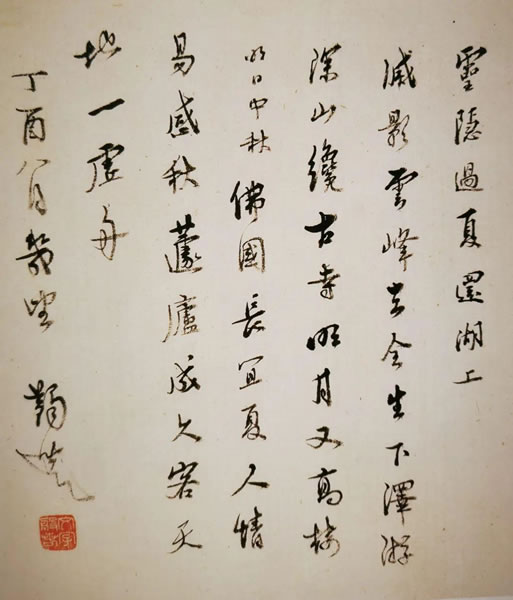 靈隱過夏還湖上
滅影雲峰去全生下澤游
深山纔古寺明月又高樓
明日中秋佛國長宜夏人情
易感秋蘧廬成久客天
地一虛舟
丁酉八月幾望